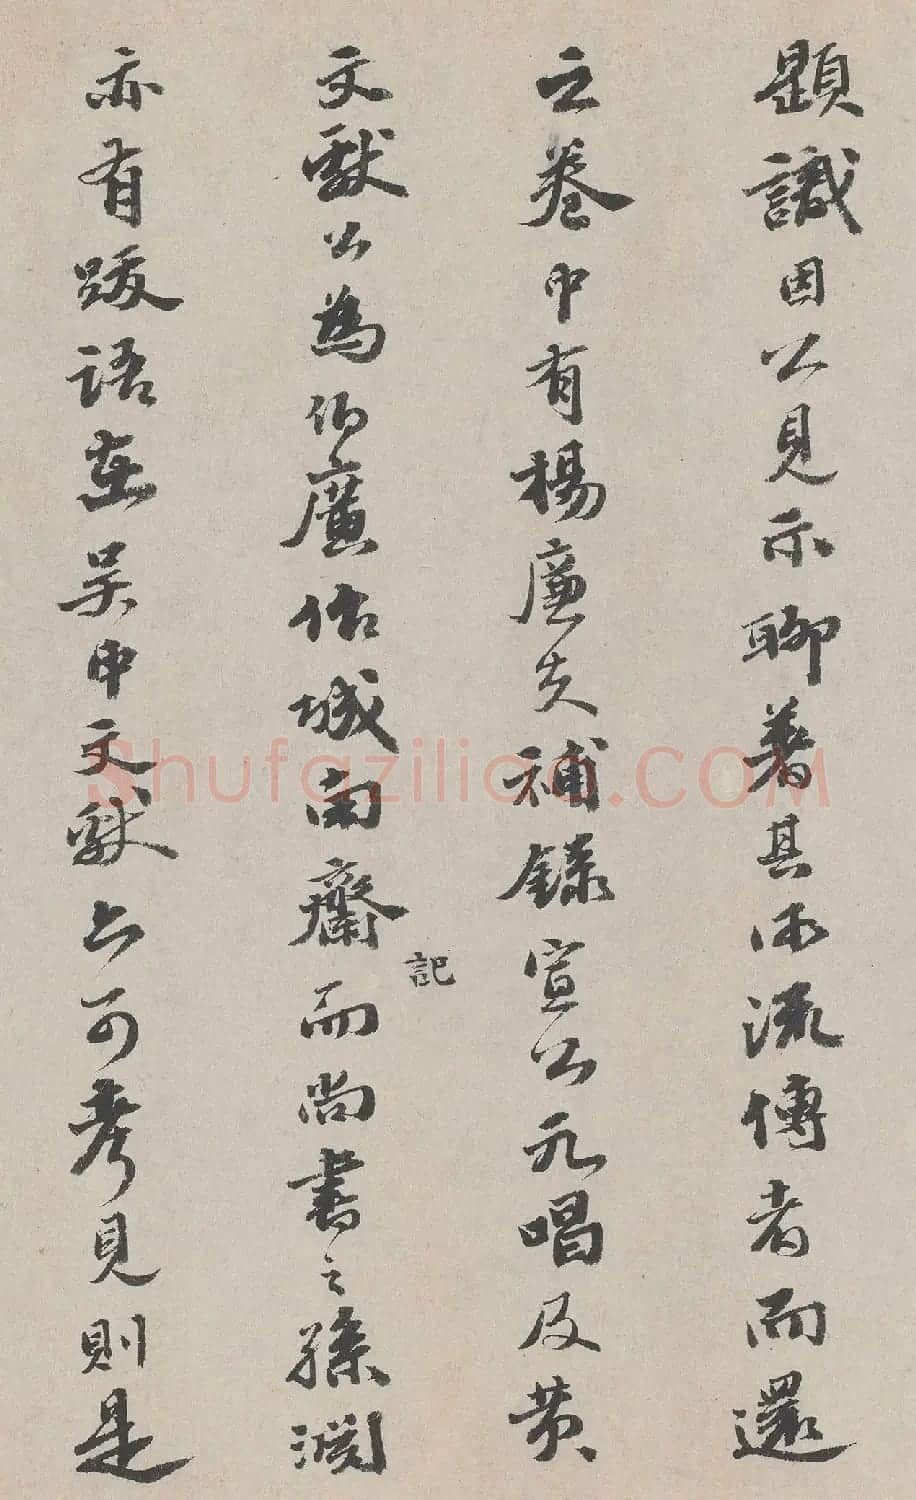 題識因公見示聊著其所流傳者而還
之卷中有楊廉夫補錄宣公元唱及黄
文獻公為伯廣作城南齋而尚書之孫淵
記
亦有跋語在吴中文獻亦可考見則是
Shufaziliao.COM